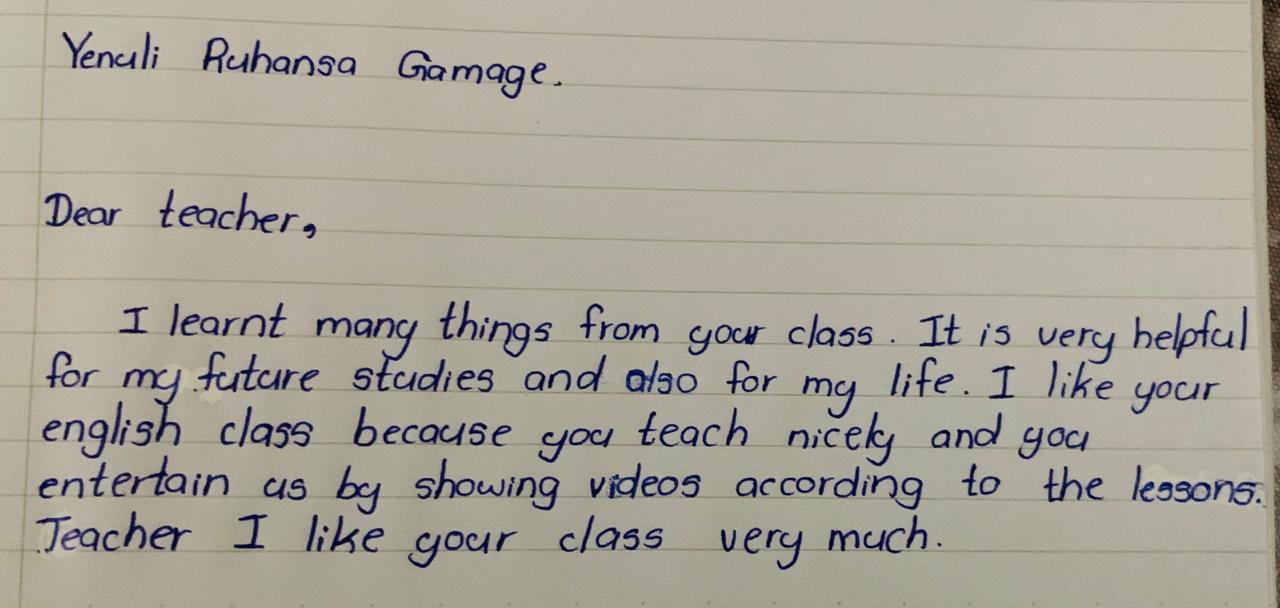 Yenuli Ruhansa Gamage.
Dear teacher,
I learnt many things from your class. It is very helpful
for my future studies and also for my life. I like your
english class because you teach nicely and you
entertain us by showing videos according to the lessons.
Teacher I like your class very much.